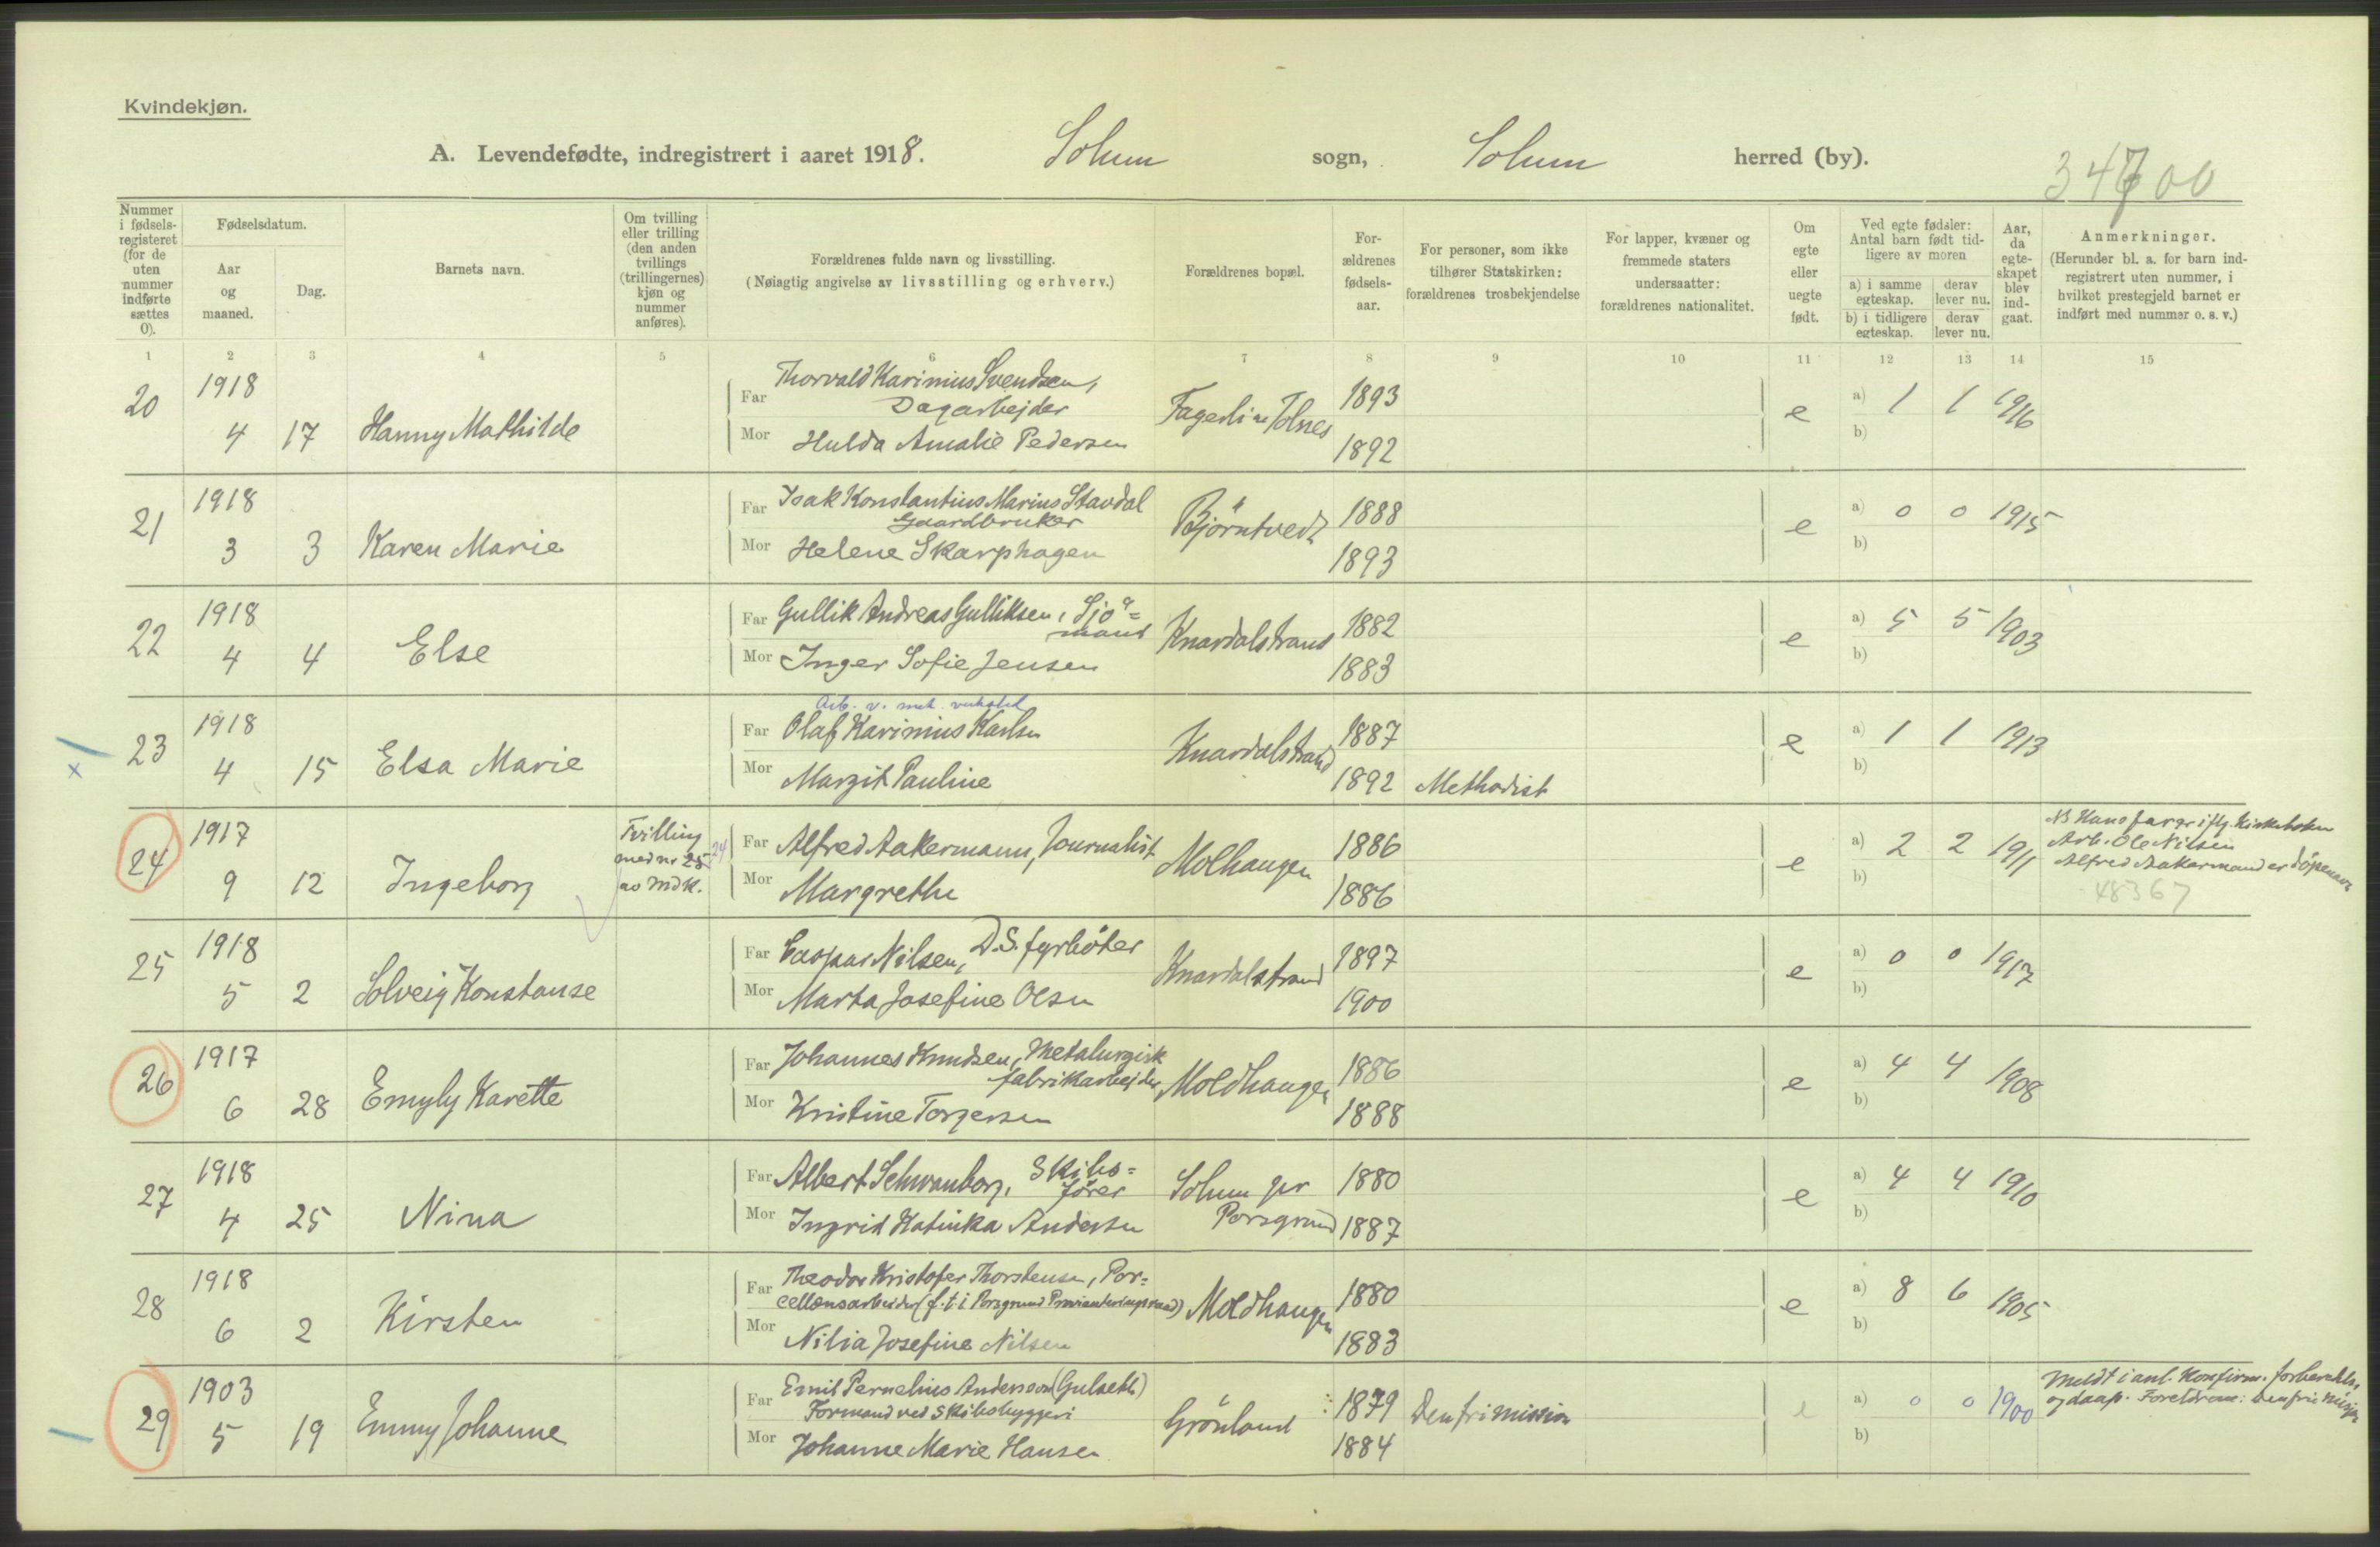 Kvindekjøn.
A. Levendefødte, indregistrert i aaret 1918. Solum sogn, Solum herred (by).
34700
Nummer i fødselsregisteret (for de uten nummer indførte sættes 0).
Fødselsdatum.
Aar og maaned.
Dag.
Barnets navn.
Om tvilling eller trilling (den anden tvillings (trillingernes) kjøn og nummer anføres).
Forældrenes fulde navn og livsstilling.
(Nøiagtig angivelse av livsstilling og erhverv.)
Forældrenes bopæl.
Forældrenes fødselsaar.
For personer, som ikke tilhører Statskirken: forældrenes trosbekjendelse
For lapper, kvæner og fremmede staters undersaatter: forældrenes nationalitet.
Om egte eller uegte født.
Ved egte fødsler: Antal barn født tidligere av moren
a) i samme egteskap.
derav lever nu.
b) i tidligere egteskap.
derav lever nu.
Aar, da egteskapet blev indgaat.
Anmerkninger.
(Herunder bl. a. for barn indregistrert uten nummer, i hvilket prestegjeld barnet er indført med nummer o. s. v.)
1 2 3 4 5 6 7 8 9 10 11 12 13 14 15
20 1918 4 17 Hanny Mathilde
Far Thorvald Karinius Svendsen, Dagarbejder
Mor Hulda Amalie Pedersen
Fagerli Tolnes 1893 1892 e a) 1 1 1916 b)
21 1918 3 3 Karen Marie
Far Isak Konstantius Marius Stavdal
Gaardbruker
Mor Helene Skarphagen
Björntvedt 1888 1893 e a) 0 0 1915 b)
22 1918 4 4 Else
Far Gullik Andreas Gulliksen, Sjömand
Mor Inger Sofie Jensen
Knardalstrand 1882 1883 e a) 5 5 1903 b)
23 1918 4 15 Elsa Marie
Arb. v. mek. verksted
Far Olaf Karinius Karlsen
Mor Margit Pauline
Knardalstrand 1887 1892 Methodist e a) 1 1 1913 b)
24 1917 9 12 Ingeborg
Tvilling med nr 25 24 av mdk.
Far Alfred Aakermann, Journalist
Mor Margrethe
Molhaugen 1886 1886 e a) 2 2 1911 b)
NB Hans far er iflg. Kirkeboken
Arb. Ole Nilsen
Alfred Aakermand er döpenavn
48367
25 1918 5 2 Solveig Konstanse
Far Caspar Nilsen, D.S. fyrböter
Mor Marta Josefine Olsen
Knardalstrand 1897 1900 e a) 0 0 1917 b)
26 1917 6 28 Emyly Karette
Far Johannes Knudsen, Metalurgisk
fabrikarbejder
Mor Kristine Torgersen
Moldhaugen 1886 1888 e a) 4 4 1908 b)
27 1918 4 25 Nina
Far Albert Schwanborg, Skibsförer
Mor Ingrid Katinka Andersen
Solum pr Porsgrund 1880 1887 e a) 4 4 1910 b)
28 1918 6 2 Kirsten
Far Theodor Kristofer Thorstensen, Porcellænsarbeider (f.t. i Porsgrund Provianteringsraad)
Mor Nilia Josefine Nilsen
Moldhaugen 1880 1883 e a) 8 6 1905 b)
29 1903 5 19 Emmy Johanne
Far Emil Pernelius Anderson (Gulseth)
Formand ved Skibsbyggeri
Mor Johanne Marie Hansen
Grönland 1879 1884 Den fri mission e a) 0 0 1900 b)
Meldt i anl. Konfirm. forberedelse
og daap. Foreldrene: Den frie Misjon